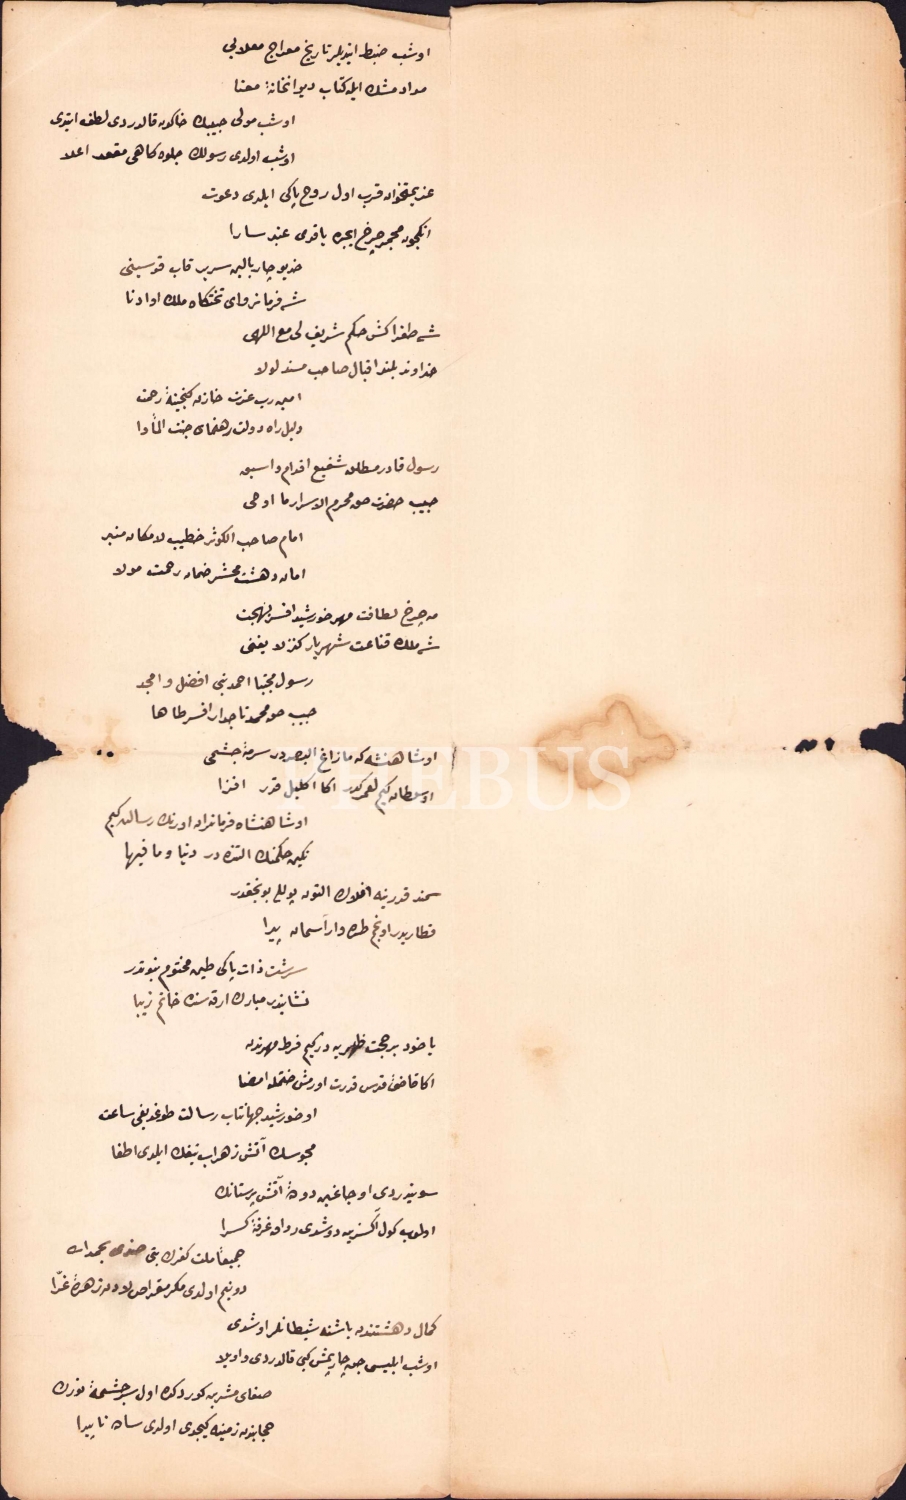 اوشب ضبط ایتدیلر تاریخ معراج معلایی
مداد مشك ایله كتاب دیوانخانهٔ معنا
اوشب مولی حبیبك خاكدن قالدردی لطف ایتدی
اوشب اولدی رسولك جلوه كاهی مقعد اعلا
عزیمتخوان قرب اول روح پاكی ایلدی دعوت
انكچون مجمر چرخ ایچره یاقدی عنبر سارا
خدیو چار بالین سریر قاب قوسینی
شه فرمانروای تختكاه ملك او ادنا
شه طغراكش حكم شریف لی مع اللهی
خداوند بلند اقبال صاحب مسند لولا
امین رب عزت خازن كنجینهٔ رحمت
دلیل راه دولت رهنمای جنت المأوا
رسول قادر مطلق شفیع اقدام و اسبق
حبیب حضرت حق محرم الاسرار ما اوحی
امام صاحب الكوثر خطیب لامكان منبر
امان دهشت محشر ضمان رحمت مولا
مه چرخ لطافت مهر خورشید افسر بهجت
شه ملك قناعت شهریار كنز لا یفنی
رسول مجتبا احمد نبی افضل و امجد
حبیب حق محمد تاجدار افسر طاها
اوشاهنشه كه مازاغ البصردر سرمهٔ چشمی
اوسلطان كیم لعمركدر اكا اكلیل قدر افزا
اوشاهنشاه فرمانران اورنك رسالت كیم
نكین حكمنك التنده در دنیا و مافیها
سمند قدرینه افلاك التون پوللی بونجقدر
قطاریدر اونجم طره دار آسمان پیرا
سرشت ذات پاكی طین مختوم نبوتدر
نشانیدر مبارك ارقه سنده خاتم زیبا
یاخود بر حجت ظهریه دركیم فرط مهرندن
اكا قاضئ قدس قدرت اورمش ختمله امضا
اوخورشید جهانتاب رسالت طوغدیغی ساعت
مجوسك آتش زهراب تیغك ایلدی اطفا
سویندردی اوجاغین دودهٔ آتش پرستانك
اولوب كول اكسزین دوشدی رواق غرفهٔ كسرا
جمیعا ملت كفرك بتی صندی بحمدالله
دونیم اولدی مكر مقراض لادن زهرهٔ غرّا
كمال دهشتندن باشنه شیطانلر اوشدی
اوشب ابلیسی جن چارپمش كبی قالدردی واویلا
صفای مشربن كوردكده اول سرچشمهٔ نورك
حجابندن زمینه كیچدی اولدی ساوه ناپیدا
PHEBUS